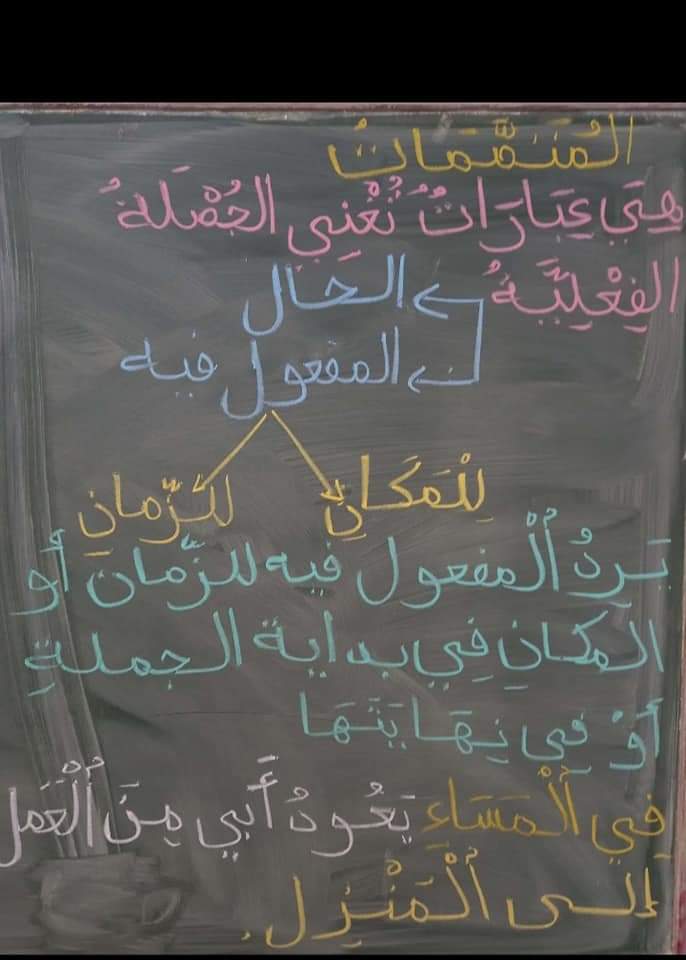 المُتَمِّمَاتُ
هِيَ عِبَارَاتٌ تُغْنِي الجُمْلَةُ
الفِعْلِيَّةُ
الحال
المفعول فيه
لِلْمَكَانِ لِلزَّمانِ
يَرِدُ ٱلْمفعول فيه للزَّمان أو
المكانِ فِي بداية الجملةِ
أَوْ فِي نِهَايَتَهَا
فِي ٱلْمَسَاءِ يَعُودُ أَبي مِنَ ٱلْعَمل
إلى ٱلْمَنْزِل.